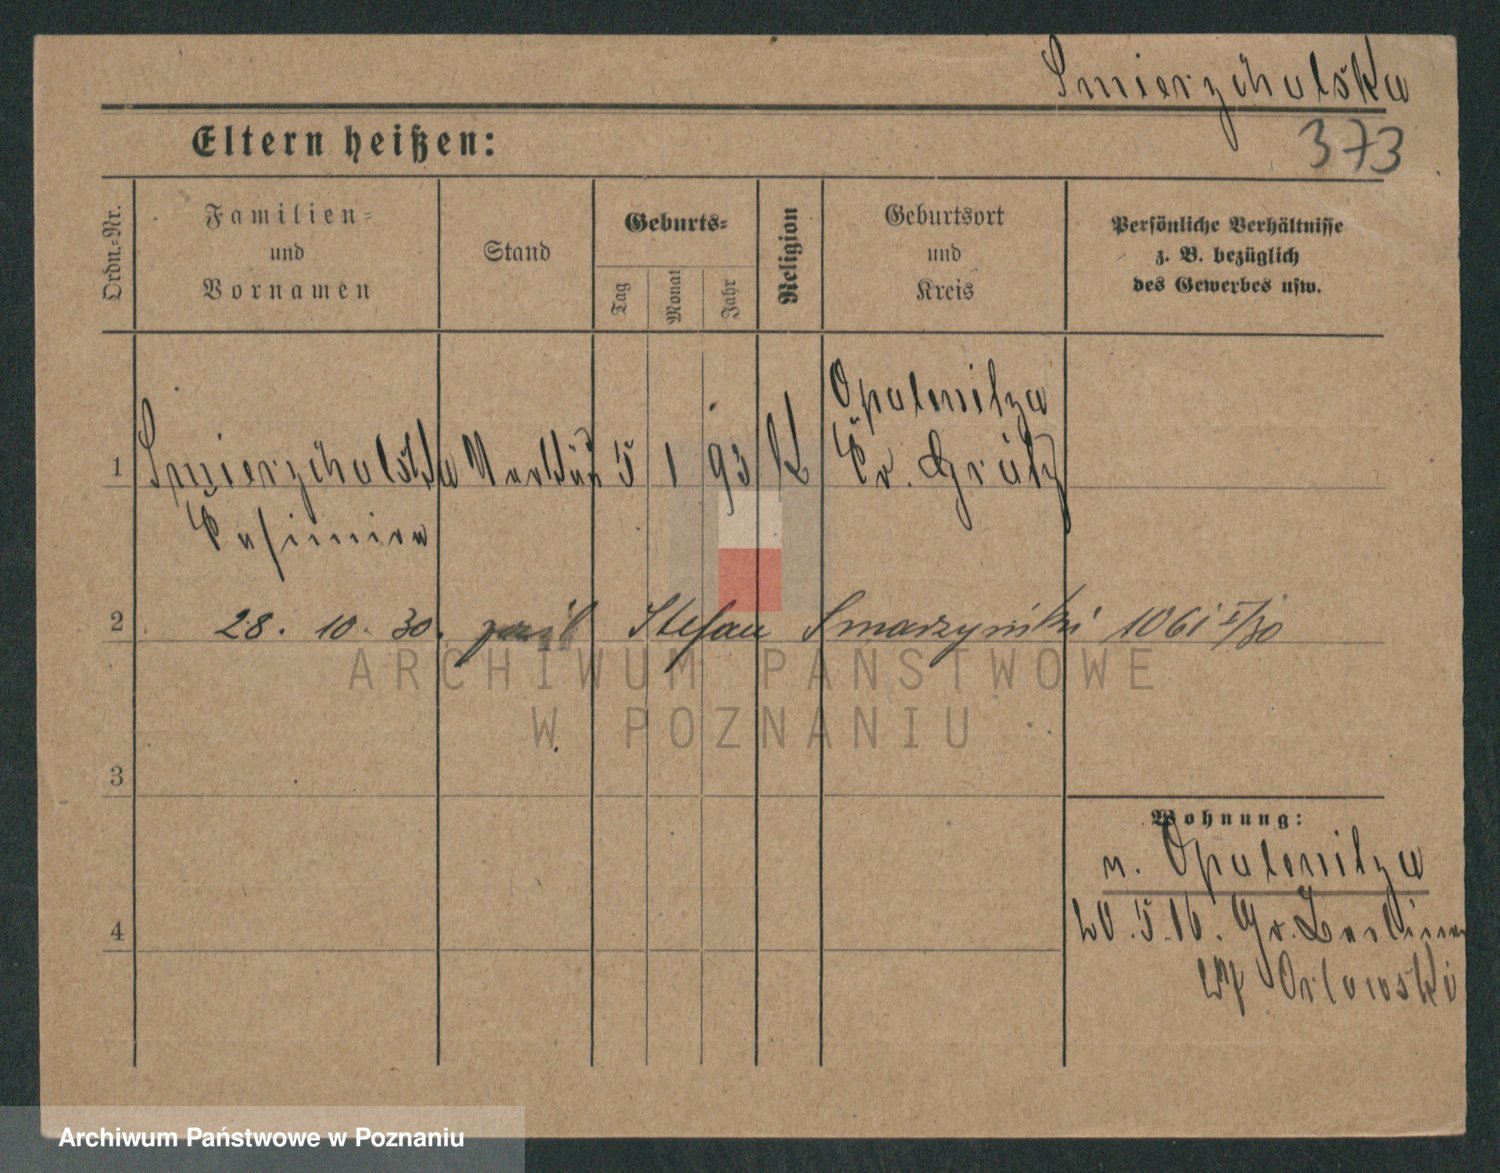 Smierzchalska
373
Eltern heißen:
Ordn.=Nr.
Familien=
und
Vornamen
Stand
Geburts=
Tag
Monat
Jahr
Religion
Geburtsort
und
Kreis
Persönliche Verhältnisse
z. B. bezüglich
des Gewerbes usw.
Opalenitza
1 Smierzchalska 5 1 93 K Kr. Grätz
Kasimira
2 28. 10. 30. Stefan Smarzyński 1061 I/30
ARCHIWUM PAŃSTWOWE
W POZNANIU
3
Wohnung:
n. Opalenitza
4
20.5.16. Gr. Berliner
Orlowski
Archiwum Państwowe w Poznaniu